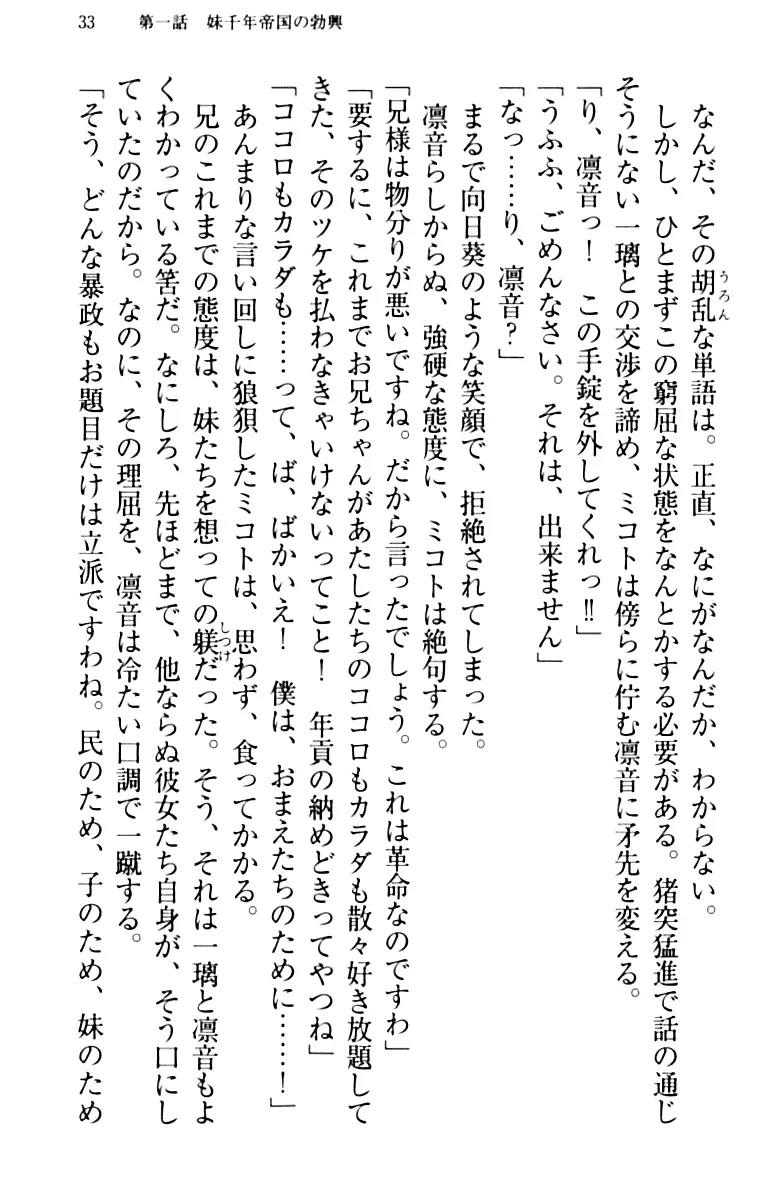 33　第一話　妹千年帝国の勃興
なんだ、その胡乱な単語は。正直、なにがなんだか、わからない。
しかし、ひとまずこの窮屈な状態をなんとかする必要がある。猪突猛進で話の通じ
そうにない一璃との交渉を諦め、ミコトは傍らに佇む凛音に矛先を変える。
「り、凛音っ！　この手錠を外してくれっ‼」
「うふふ、ごめんなさい。それは、出来ません」
「なっ……り、凛音？」
まるで向日葵のような笑顔で、拒絶されてしまった。
凛音らしからぬ、強硬な態度に、ミコトは絶句する。
「兄様は物分りが悪いですね。だから言ったでしょう。これは革命なのですわ」
「要するに、これまでお兄ちゃんがあたしたちのココロもカラダも散々好き放題して
きた、そのツケを払わなきゃいけないってこと！　年貢の納めどきってやつね」
「ココロもカラダも……って、ば、ばかいえ！　僕は、おまえたちのために……！」
あんまりな言い回しに狼狽したミコトは、思わず、食ってかかる。
兄のこれまでの態度は、妹たちを想っての躾だった。そう、それは一璃と凛音もよ
くわかっている筈だ。なにしろ、先ほどまで、他ならぬ彼女たち自身が、そう口にし
ていたのだから。なのに、その理屈を、凛音は冷たい口調で一蹴する。
「そう、どんな暴政もお題目だけは立派ですわね。民のため、子のため、妹のため
うろん
しつけ